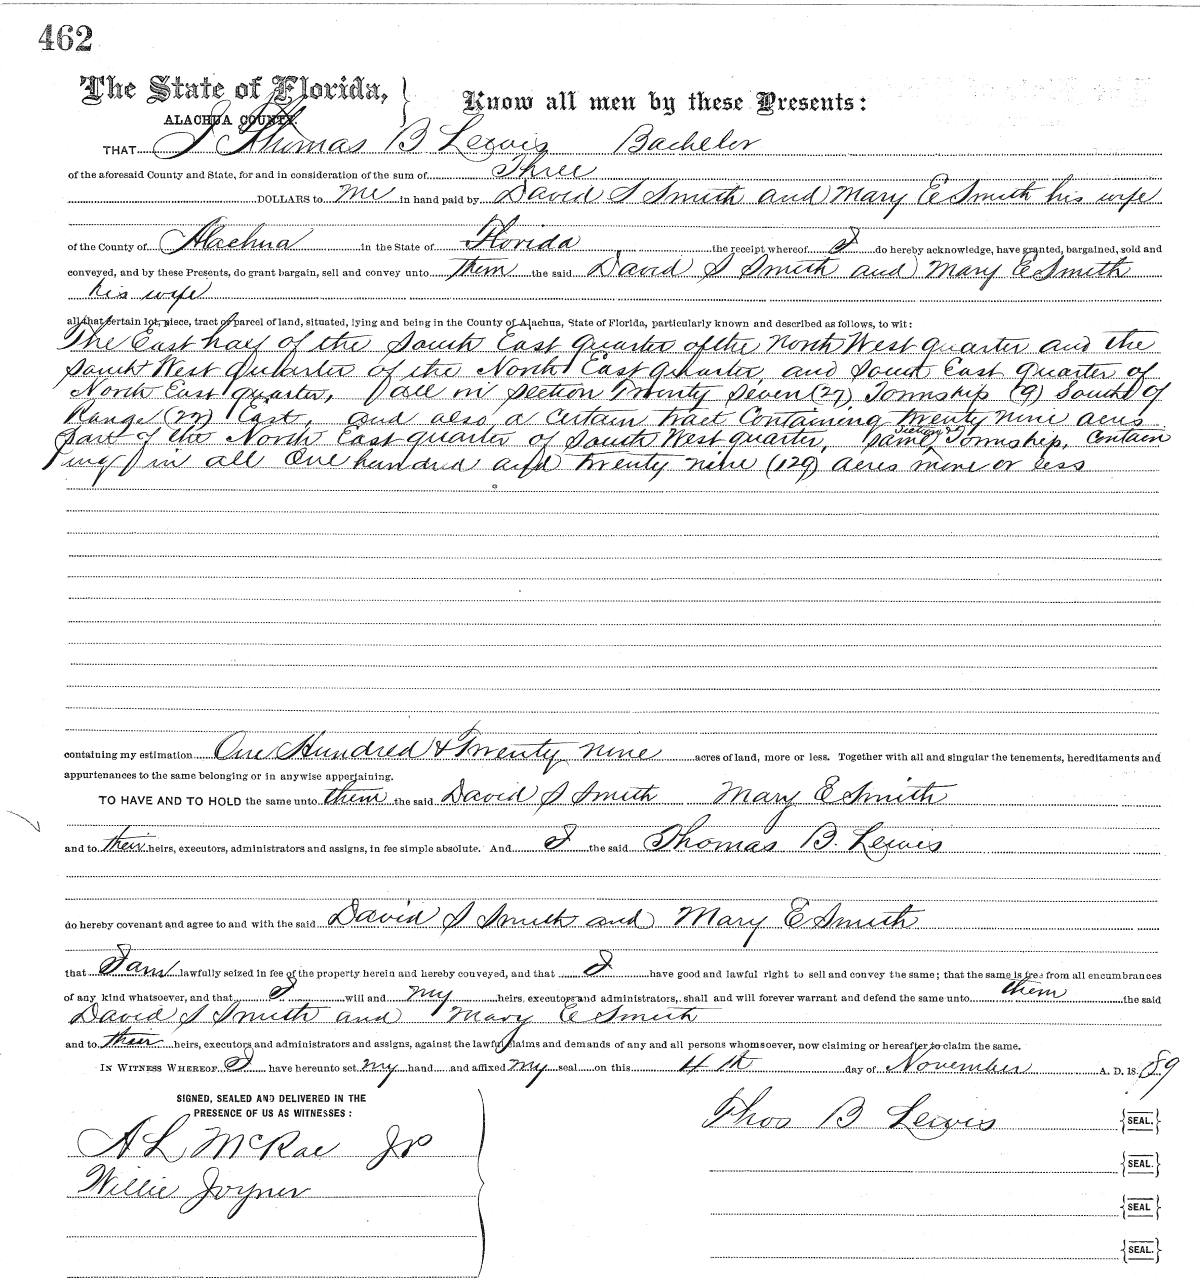 462
The State of Florida,
ALACHUA COUNTY.
Know all men by these Presents:
THAT I Thomas B Lewis Bachelor
of the aforesaid County and State, for and in consideration of the sum of Three
DOLLARS to me in hand paid by David S Smith and Mary E Smith his wife
of the County of Alachua in the State of Florida the receipt whereof I do hereby acknowledge, have granted, bargained, sold and
conveyed, and by these Presents, do grant bargain, sell and convey unto them the said David S Smith and Mary E Smith
his wife
all that certain lot, piece, tract of parcel of land, situated, lying and being in the County of Alachua, State of Florida, particularly known and described as follows, to wit:
The East half of the South East quarter of the North West quarter and the
South West quarter of the North East quarter, and South East quarter of
North East quarter, all in section Twenty Seven (27) Township (9) South of
Range (22) East, and also a certain tract containing twenty nine acres
part of the North East quarter of South West quarter, same Section 27 Township, contain
ing in all One hundred and twenty nine (129) acres more or less
containing my estimation One Hundred & Twenty nine acres of land, more or less. Together with all and singular the tenements, hereditaments and
appurtenances to the same belonging or in anywise appertaining.
TO HAVE AND TO HOLD the same unto them the said David S Smith Mary E Smith
and to their heirs, executors, administrators and assigns, in fee simple absolute. And I the said Thomas B. Lewis
do hereby covenant and agree to and with the said David S Smith and Mary E Smith
that I am lawfully seized in fee of the property herein and hereby conveyed, and that I have good and lawful right to sell and convey the same; that the same is free from all encumbrances
of any kind whatsoever, and that I will and my heirs, executors and administrators, shall and will forever warrant and defend the same unto them the said
David S Smith and Mary E Smith
and to their heirs, executors and administrators and assigns, against the lawful claims and demands of any and all persons whomsoever, now claiming or hereafter to claim the same.
IN WITNESS WHEREOF I have hereunto set my hand and affixed my seal on this 4th day of November A. D. 1889
SIGNED, SEALED AND DELIVERED IN THE
PRESENCE OF US AS WITNESSES:
Thos B Lewis {SEAL.}
A L McRae Jr
{SEAL.}
Willie Joyner
{SEAL}
{SEAL.}